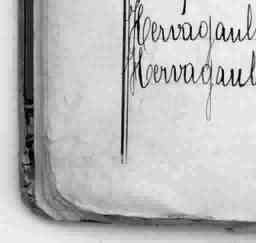 Hervagaul
Hervagaul